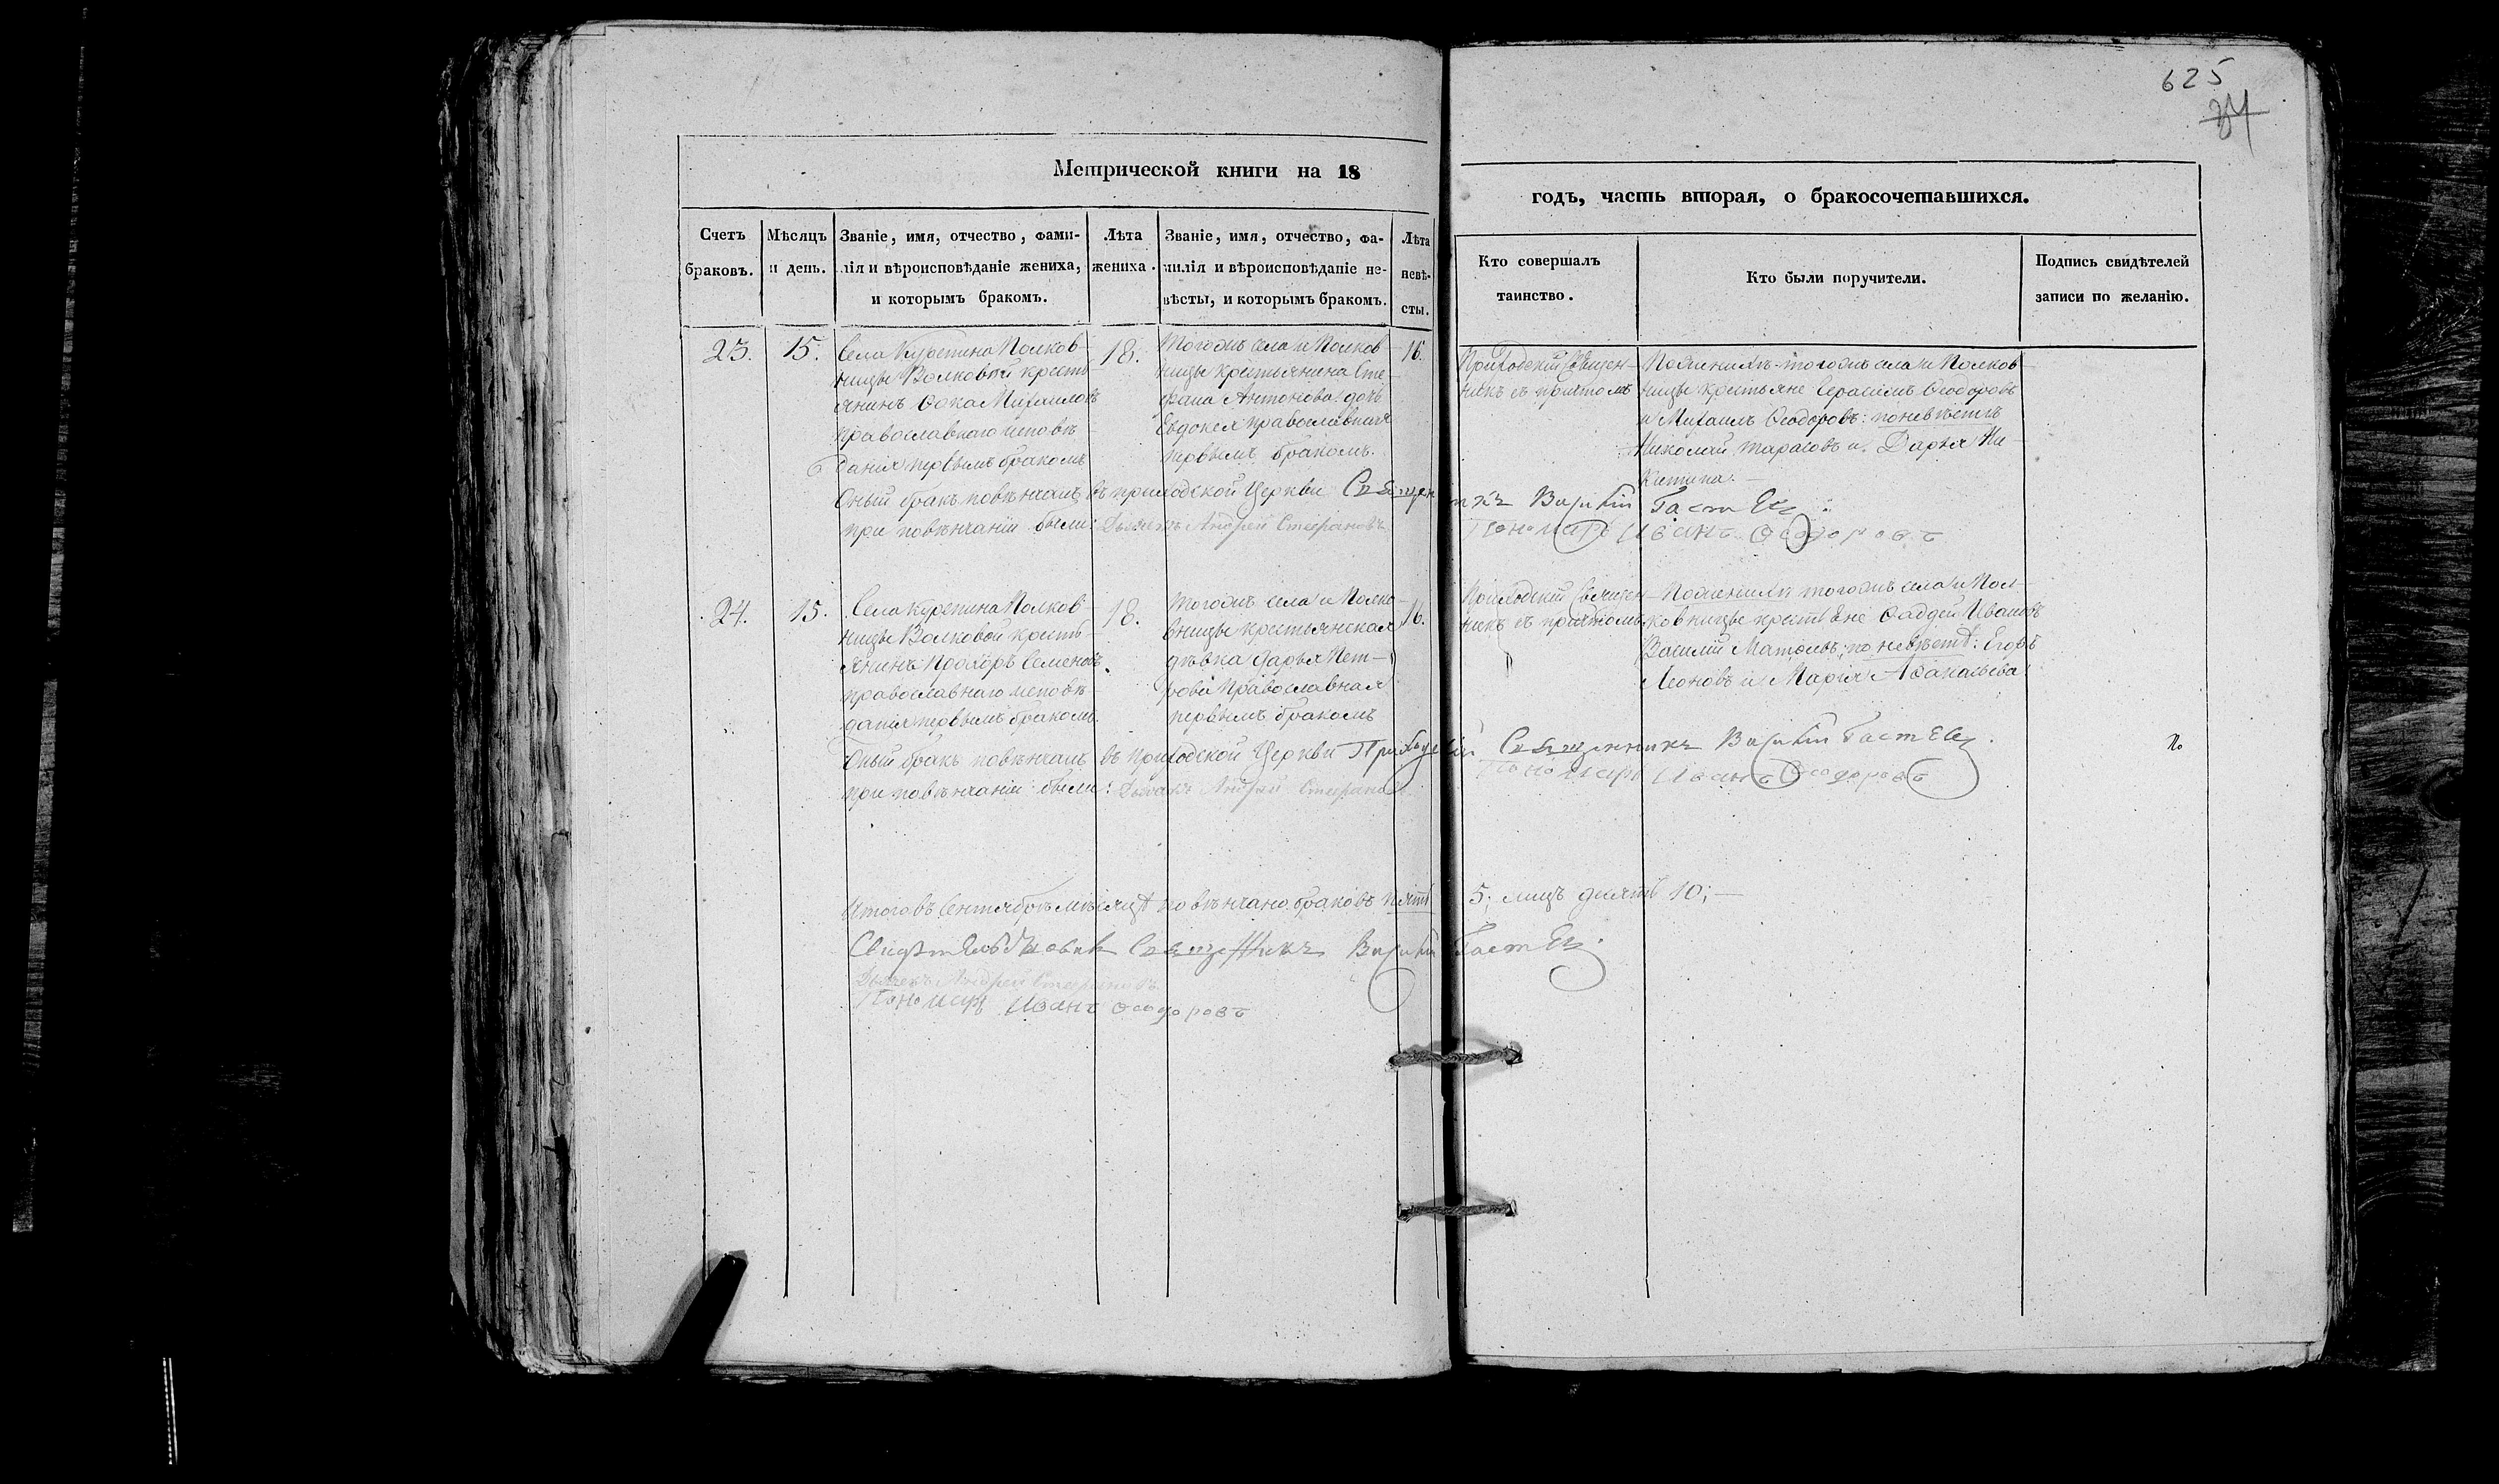 625
84
Метрической книги на 18
годъ, часть вторая, о бракосочетавшихся.
Счетъ браковъ.
Мѣсяцъ и день.
Званіе, имя, отчество, фами-
лія и вѣроисповѣданіе жениха,
и которымъ бракомъ.
Лѣта жениха.
Званіе, имя, отчество, фа-
милія и вѣроисповѣданіе не-
вѣсты, и которымъ бракомъ.
Лѣта невѣ-
сты.
Кто совершалъ
таинство.
Кто были поручители.
Подпись свидѣтелей
записи по желанію.
23.
15.
Села Курепина Полков-
ницы Волковой кресть-
янинъ Фока Михаиловъ
православнаго исповѣ-
данія первымъ бракомъ
18.
Тогожъ села и Полков-
ницы крестьянина Сте-
фана Антонова дочь
Евдокея православная
первымъ бракомъ.
16.
Приходский Священ-
никъ съ причтомъ
По женихѣ тогожъ села и Полков-
ницы крестьяне Герасимъ Ѳеодоровъ
и Михаилъ Ѳеодоровъ: по невѣстѣ
Николай Тарасовъ и Дарья Ни-
китина.
Оный бракъ повѣнчанъ въ приходской Церкви Священникъ Василій
при повѣнчаніи были: Дьячекъ Андрей Стефановъ
Пономарь Иванъ Ѳеодоровъ
24.
15.
Села Курепина Полков-
ницы Волковой кресть-
янинъ Прохоръ Семеновъ
православнаго исповѣ-
данія первымъ бракомъ.
18.
Тогожъ села и Полко-
вницы крестьянская
дѣвка Дарья Пет-
рова Православная
первымъ бракомъ
16.
Приходский Священ-
никъ съ причтомъ
По женихѣ тогожъ села и Пол-
ковницы крестьяне Фаддей Ивановъ
Василий по невѣстѣ: Егоръ
Леоновъ и Марія Афанасьева
Оный бракъ повѣнчанъ въ приходской Церкви Приходскій Священникъ Василій
при повѣнчаніи были: Дьячекъ Андрей Стефановъ
Пономарь Иванъ Ѳеодоровъ
Итого въ Сентябрѣ мѣсяцѣ повѣнчано браковъ пять 5; лицъ десять 10;
Священникъ Василій
Дьячекъ Андрей Стефановъ
Пономарь Иванъ Ѳеодоровъ
По